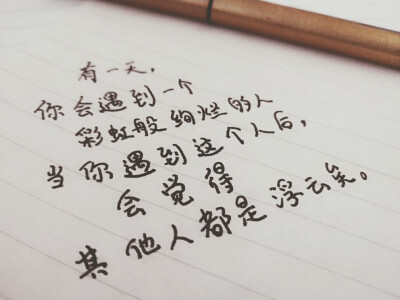 有一天，
你会遇到一个
彩虹般绚烂的人
当你遇到这个人后，
会觉得
其他人都是浮云矣。